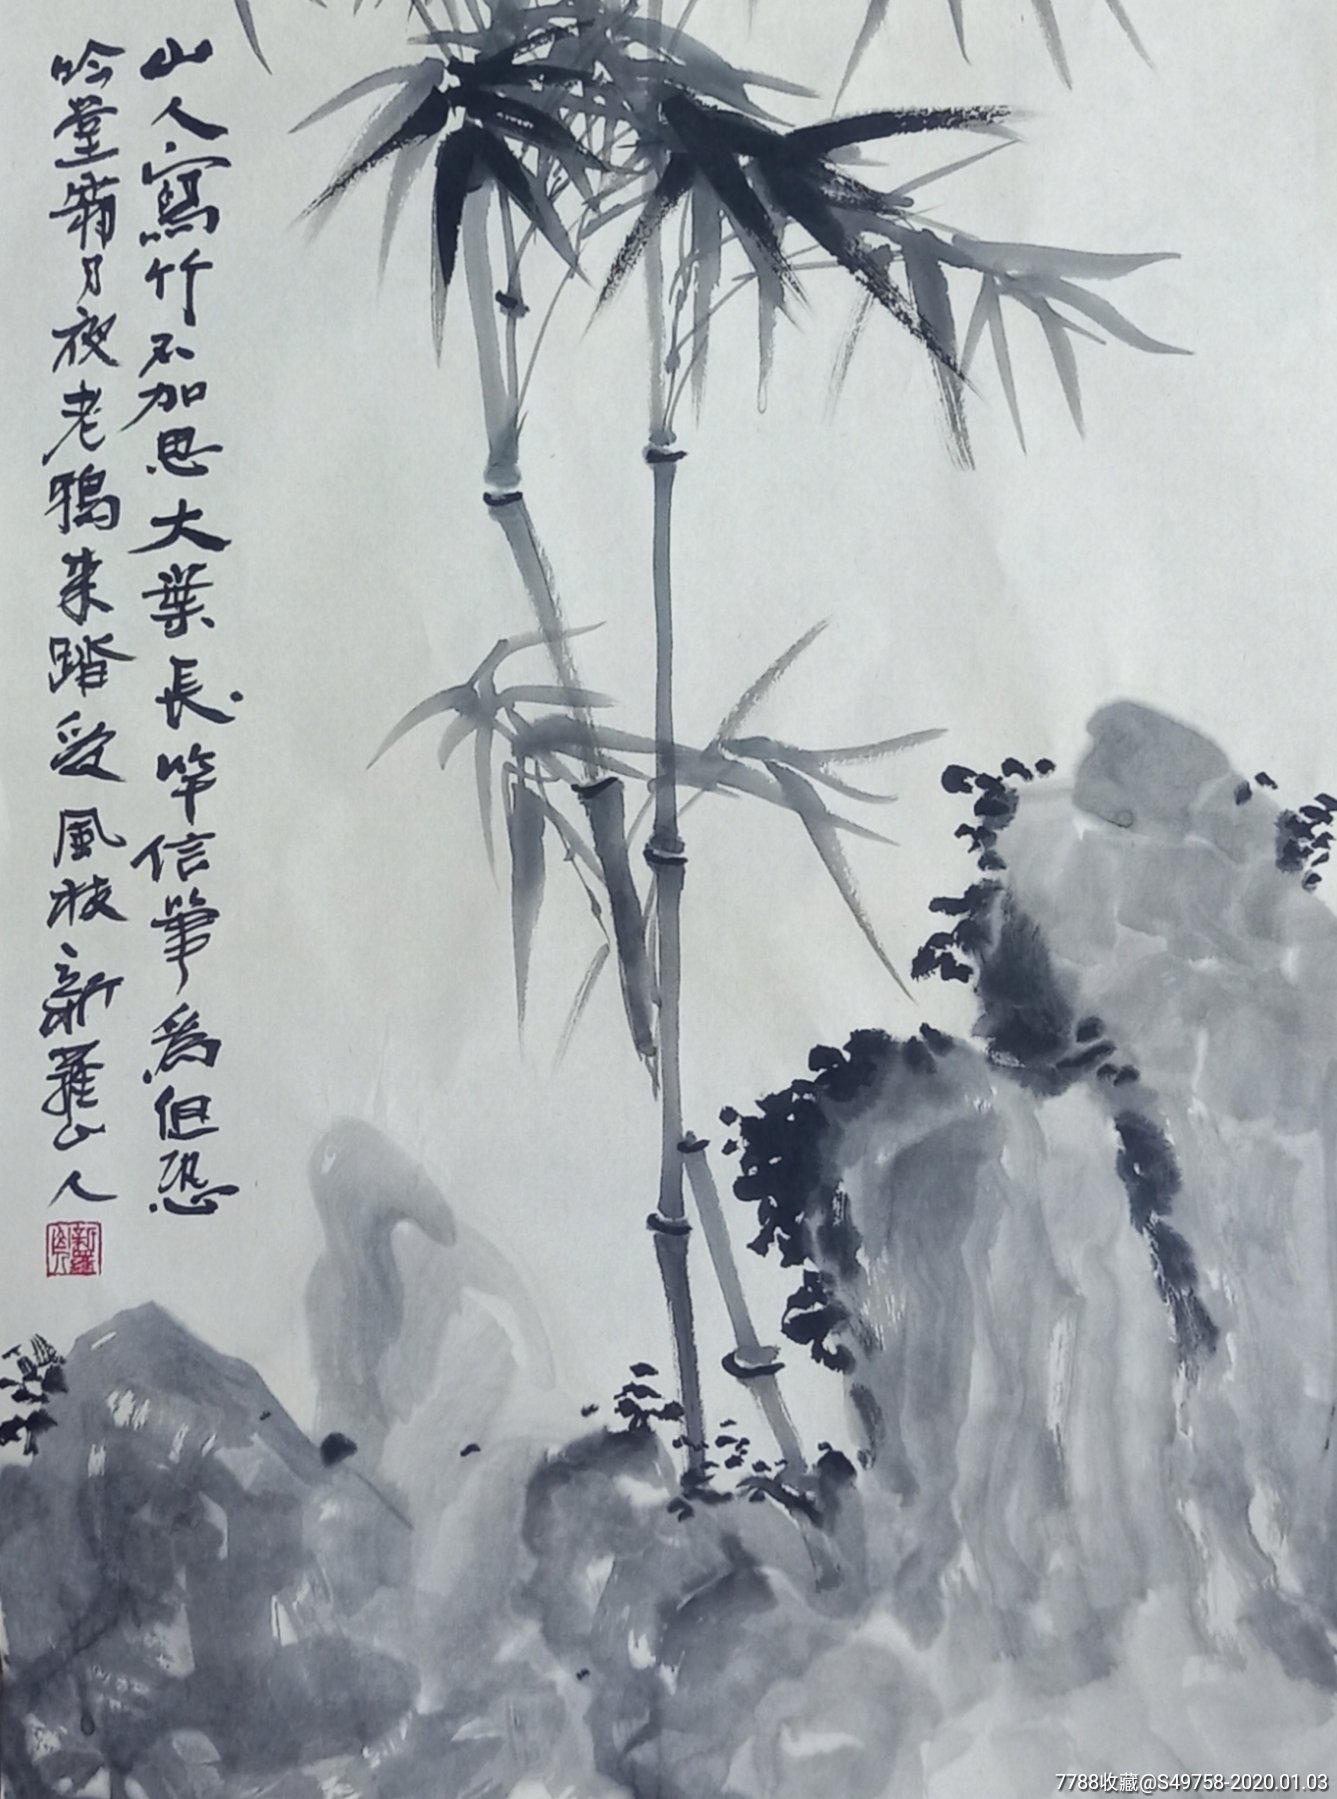 山人寫竹不加思大葉長竿信筆為但恐
吟堂霜月夜老鴉來踏受風枝新羅山人
新羅山人
7788收藏@S49758-2020.01.03